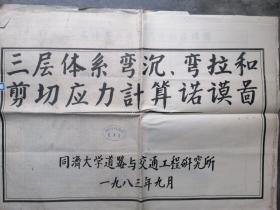 三层体系弯沉、弯拉和
剪切应力計算诺谟啚
同濟大学道路与交通工程研究所
一九八三年九月